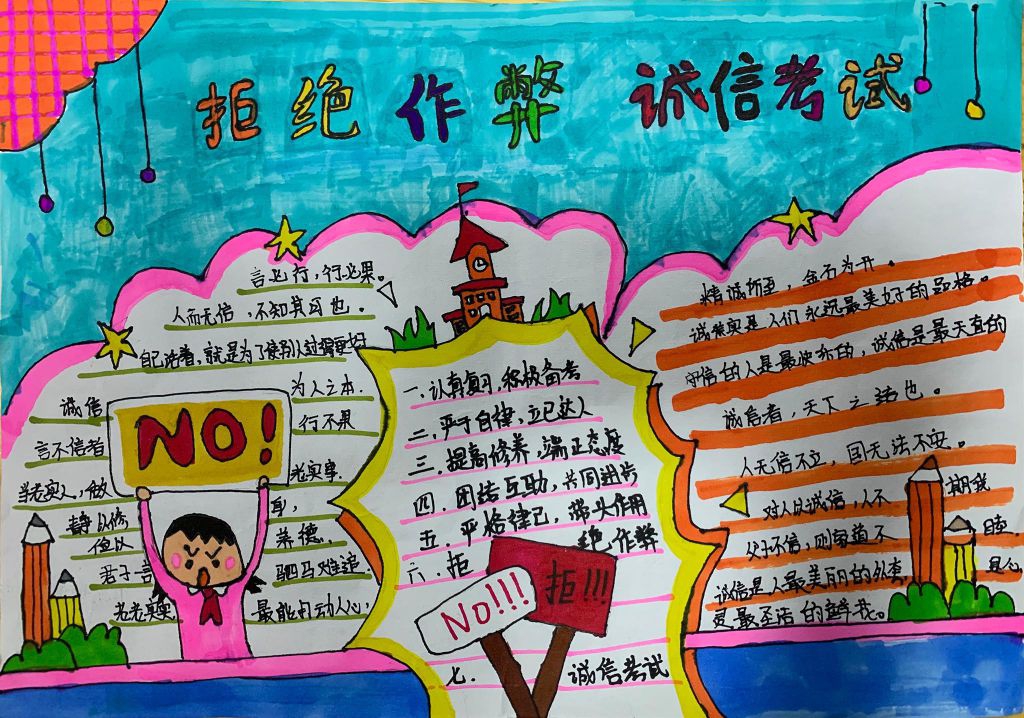 拒绝作弊 诚信考试
言必行，行必果。
人而无信，不知其可也。
自己活着，就是为了使别人过得更好
诚信 为人之本.
NO!
言不信者 行不果
当老实人，做 老实事.
静以修身，
俭以养德.
君子一言 驷马难追
老老真实 最能打动人心，
一.认真复习，积极备考
二.严于自律，立己达人
三.提高修养，端正态度
四.团结互助，共同进步
五.严格律己，带头作用
六.拒绝作弊
拒!!!
No!!!
七.诚信考试
精诚所至，金石为开。
诚实是人们永远最美好的品格。
守信的人是最快乐的，诚信是最天真的
诚信者，天下之结也。
人无信不立，国无法不安。
对人以诚信，人不欺我
父子不信，则家道不睦.
诚信是人最美丽的外套
是心灵最圣洁的鲜花。